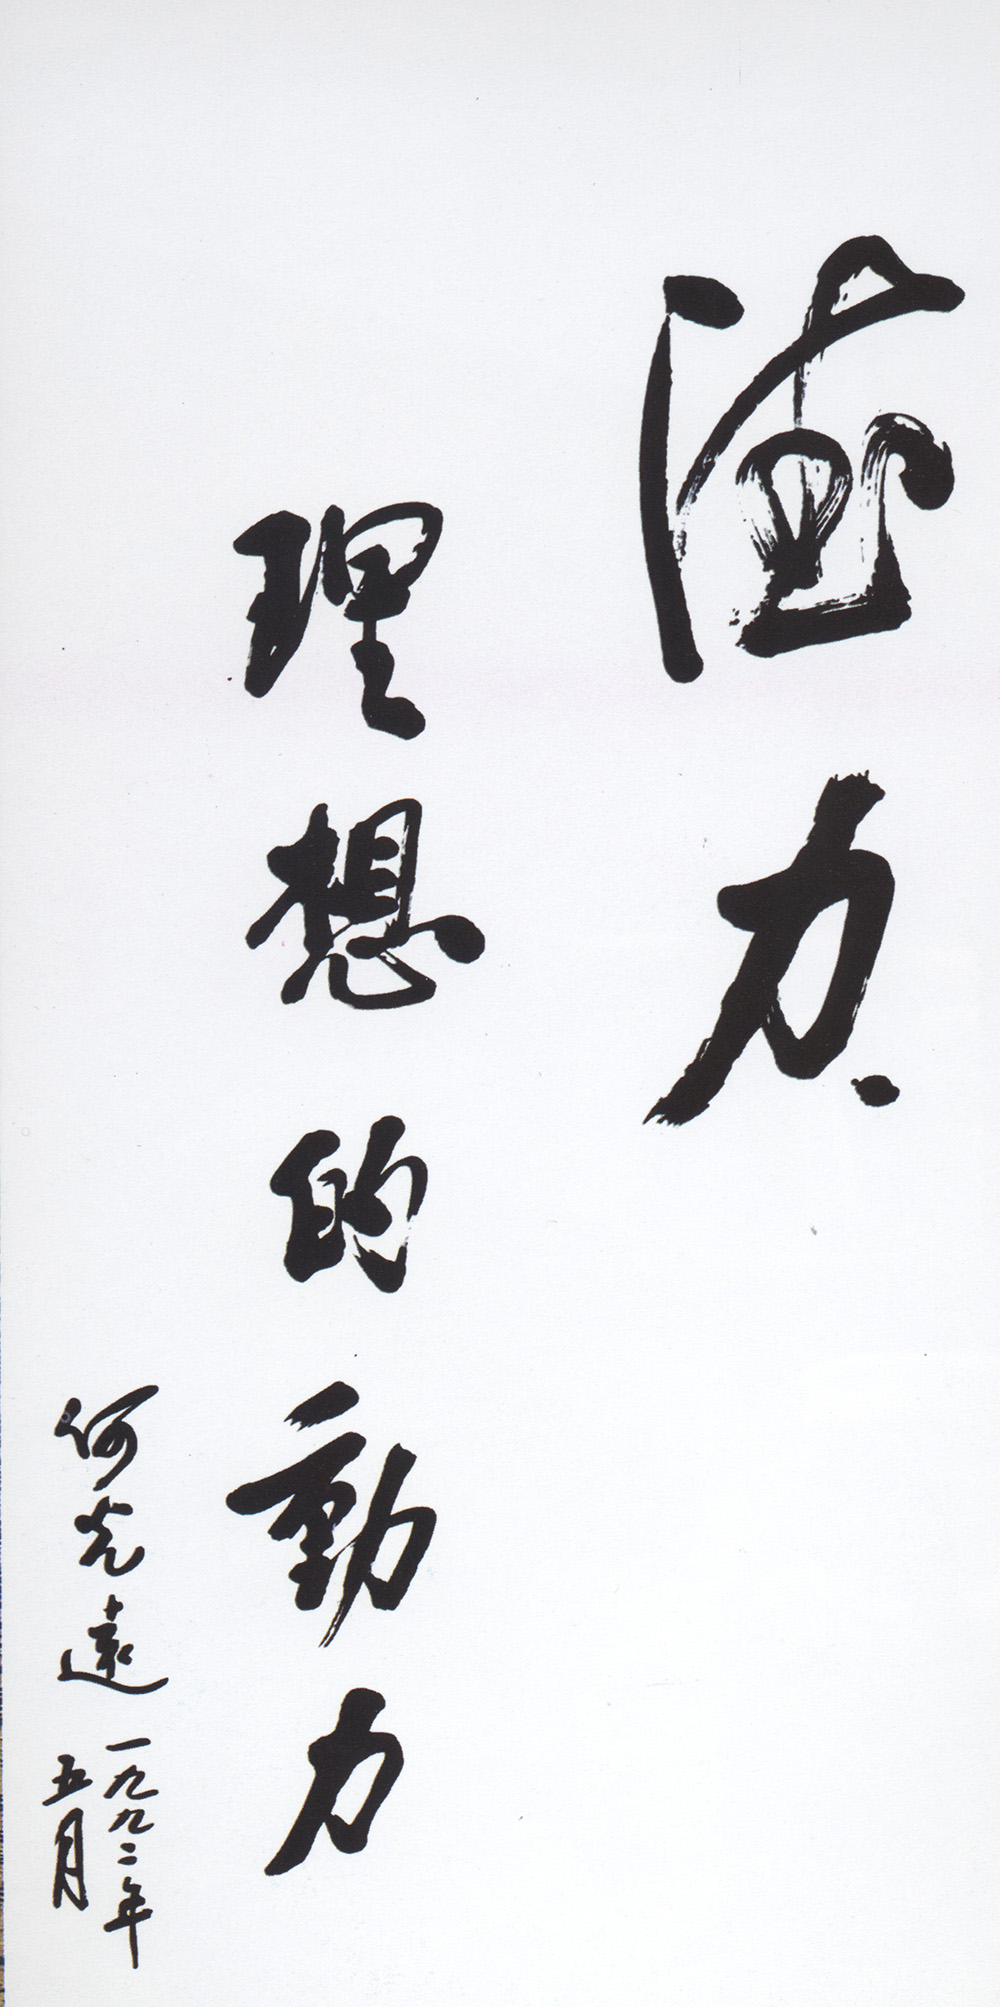 德力、
理想的動力
何光遠 一九九二年
五月